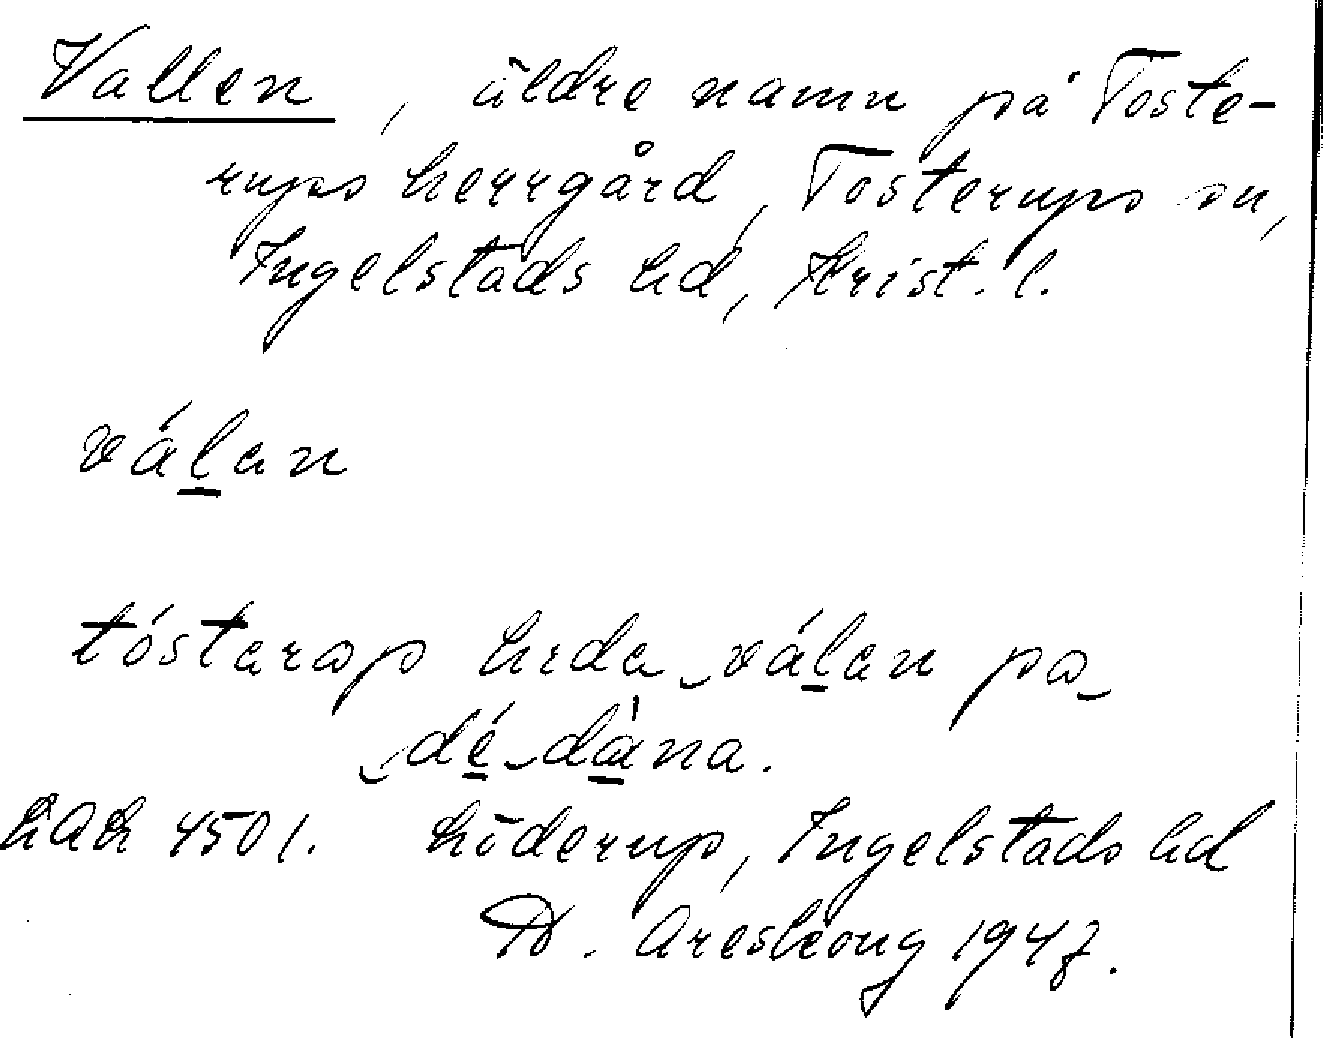 Vallen, äldre namn på Toste-
rups herrgård, Tosterups sn,
Ingelstads hd, Krist. l.
válan
tóstarap heda válan pa
dé dàna.
LAL 4501. Löderup, Ingelstads hd
D. Areskoug 1947.